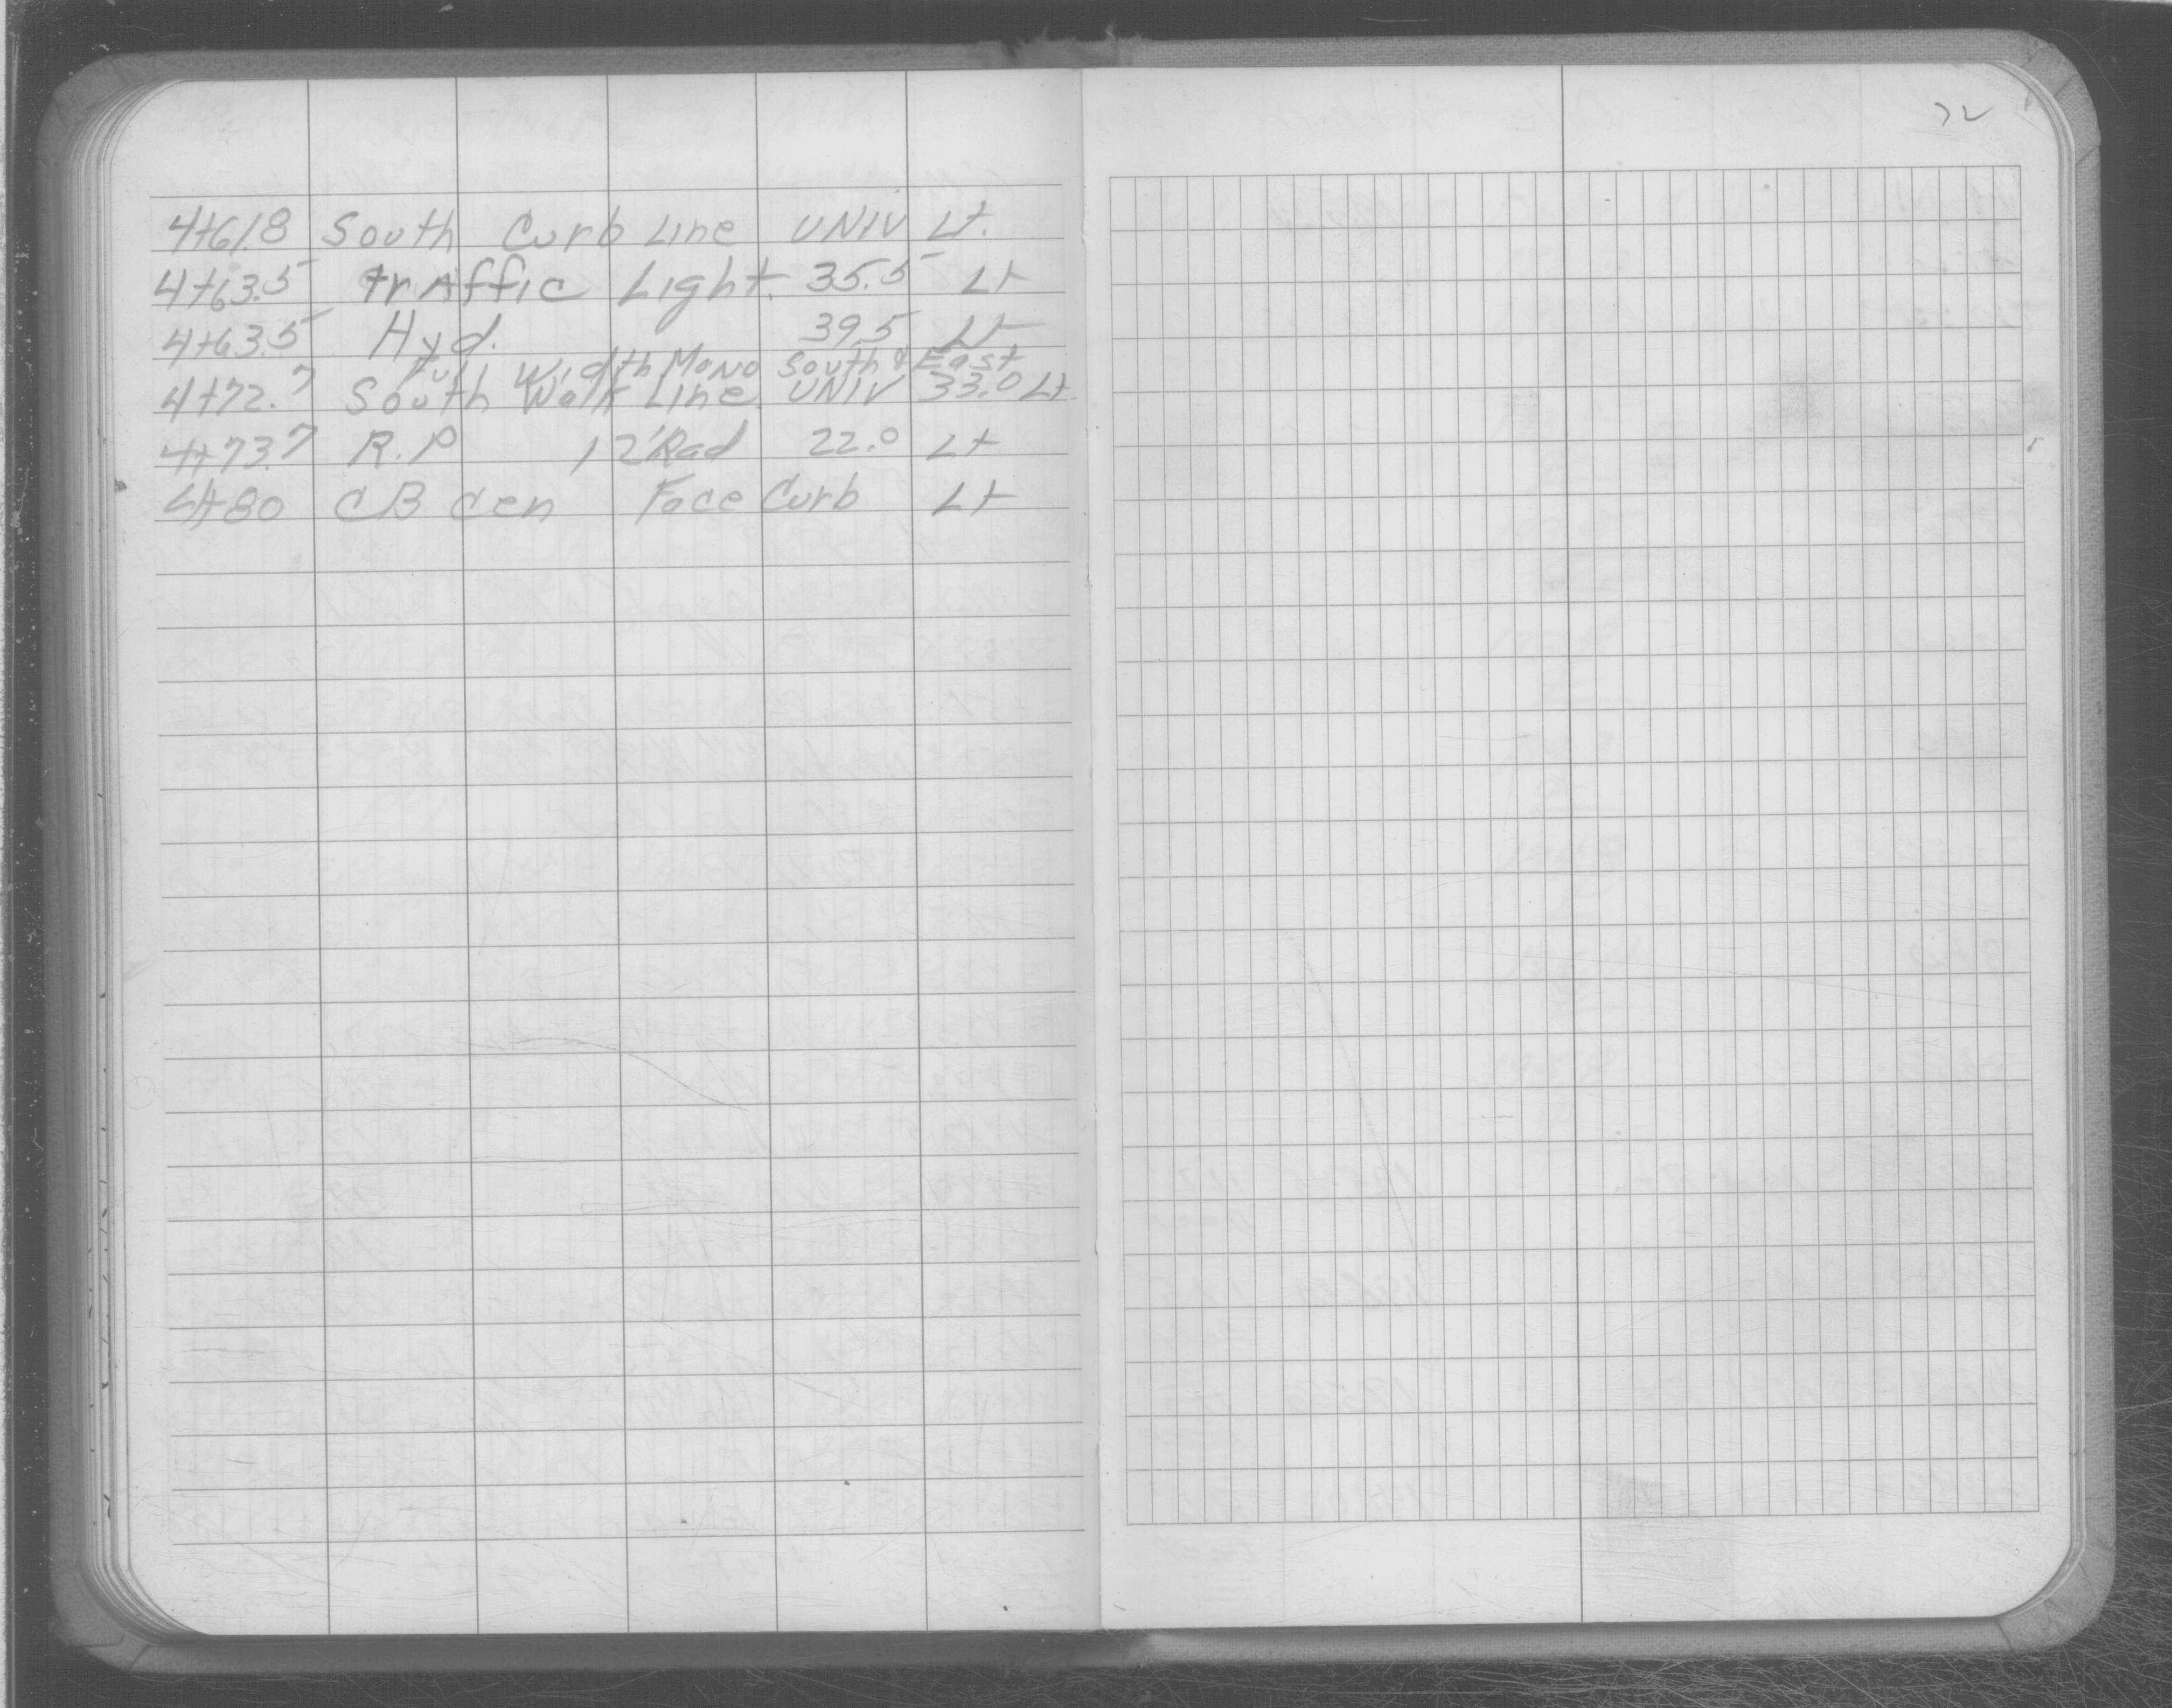 4+61.8 South Curb Line UNIV Lt.
4+63.5 traffic Light. 35.5 Lt
4+63.5 Hyd. 39.5 Lt
Full Width Mono South & East
4+72.7 South Walk Line. UNIV 33.0 Lt.
4+73.7 R.P 12' Rad 22.0 Lt
4+80 CB cen Face Curb Lt
72